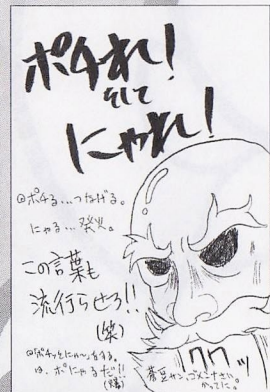 ポチれ!
そして
にゃれ!
@ポチる...つなげる。
にゃる...発
この言葉も
流行らせろ!!
(笑)
@「ポチッとにゃ〜」をする。
は、ポにゃるだ!!
クワッ
ゴメンナサイ
かってに。